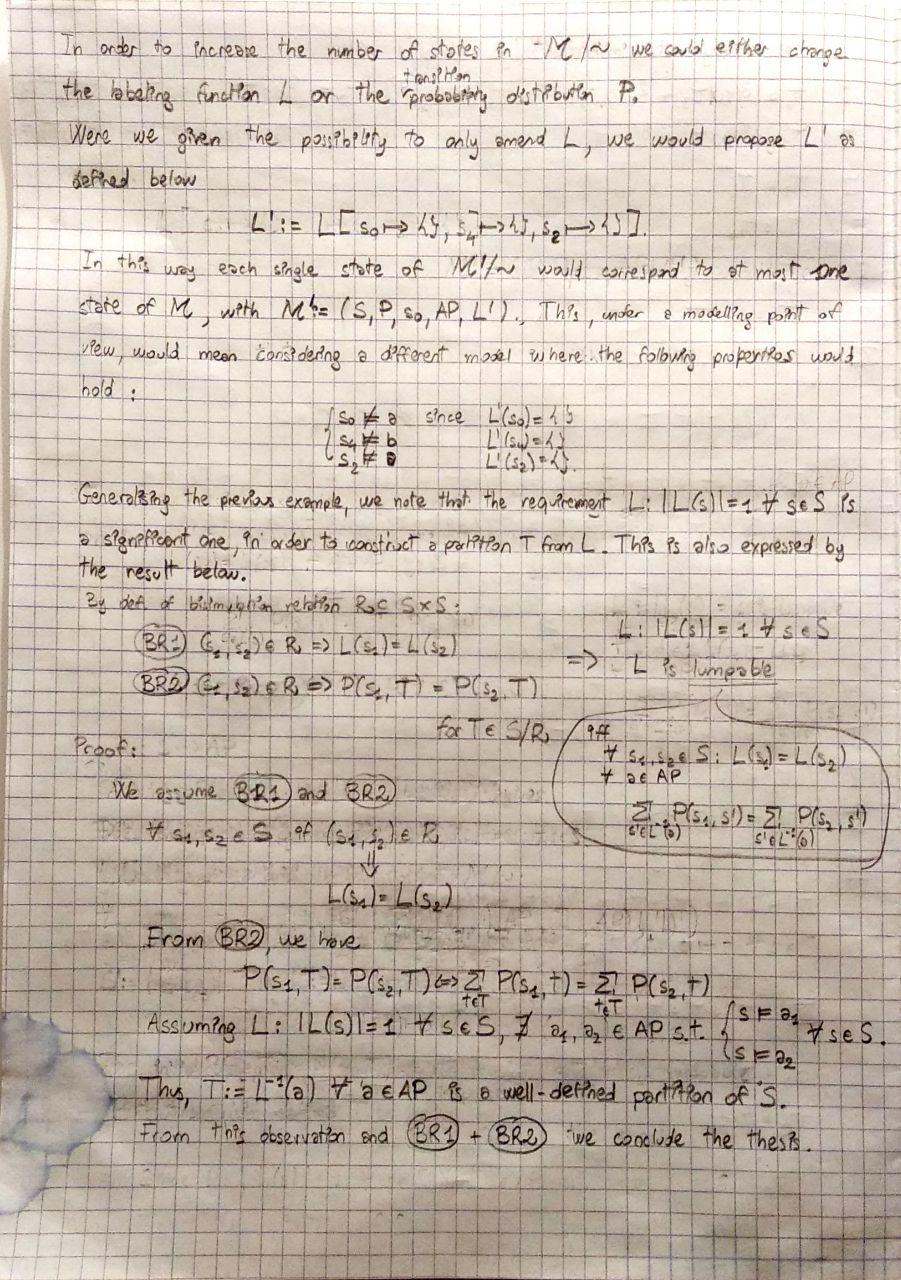 In order to increase the number of states in M/~ we could either change
the labeling function L or the transition probability distribution P.
Were we given the possibility to only amend L, we would propose L' as
defined below
L' := L[s₀ ↦ {}, s₄ ↦ {}, s₂ ↦ {}].
In this way each single state of M'/~ would correspond to at most one
state of M, with M' := (S, P, s₀, AP, L'). This, under a modelling point of
view, would mean considering a different model where the following properties would
hold :
{ s₀ ⊭ a since L'(s₀) = {}
s₄ ⊭ b L'(s₄) = {}
s₂ ⊭ a L'(s₂) = {}.
Generalising the previous example, we note that the requirement L: |L(s)| = 1 ∀ s ∈ S is
a significant one, in order to construct a partition T from L. This is also expressed by
the result below.
By def. of bisimulation relation R ⊆ S×S :
BR1 (s₁, s₂) ∈ R => L(s₁) = L(s₂)
BR2 (s₁, s₂) ∈ R => P(s₁, T) = P(s₂, T)
for T ∈ S/R
=> L: |L(s)| = 1 ∀ s ∈ S
L is lumpable
iff
∀ s₁, s₂ ∈ S : L(s₁) = L(s₂)
∀ a ∈ AP
∑_{s'∈L⁻¹(a)} P(s₁, s') = ∑_{s'∈L⁻¹(a)} P(s₂, s')
Proof:
We assume BR1 and BR2
∀ s₁, s₂ ∈ S if (s₁, s₂) ∈ R
⇓
L(s₁) = L(s₂)
From BR2, we have
P(s₁, T) = P(s₂, T) <=> ∑_{t∈T} P(s₁, t) = ∑_{t∈T} P(s₂, t)
Assuming L: |L(s)| = 1 ∀ s ∈ S, ∄ a₁, a₂ ∈ AP s.t. { s ⊨ a₁ s ⊨ a₂ ∀ s ∈ S.
Thus, T := L⁻¹(a) ∀ a ∈ AP is a well-defined partition of S.
From this observation and BR1 + BR2 we conclude the thesis.